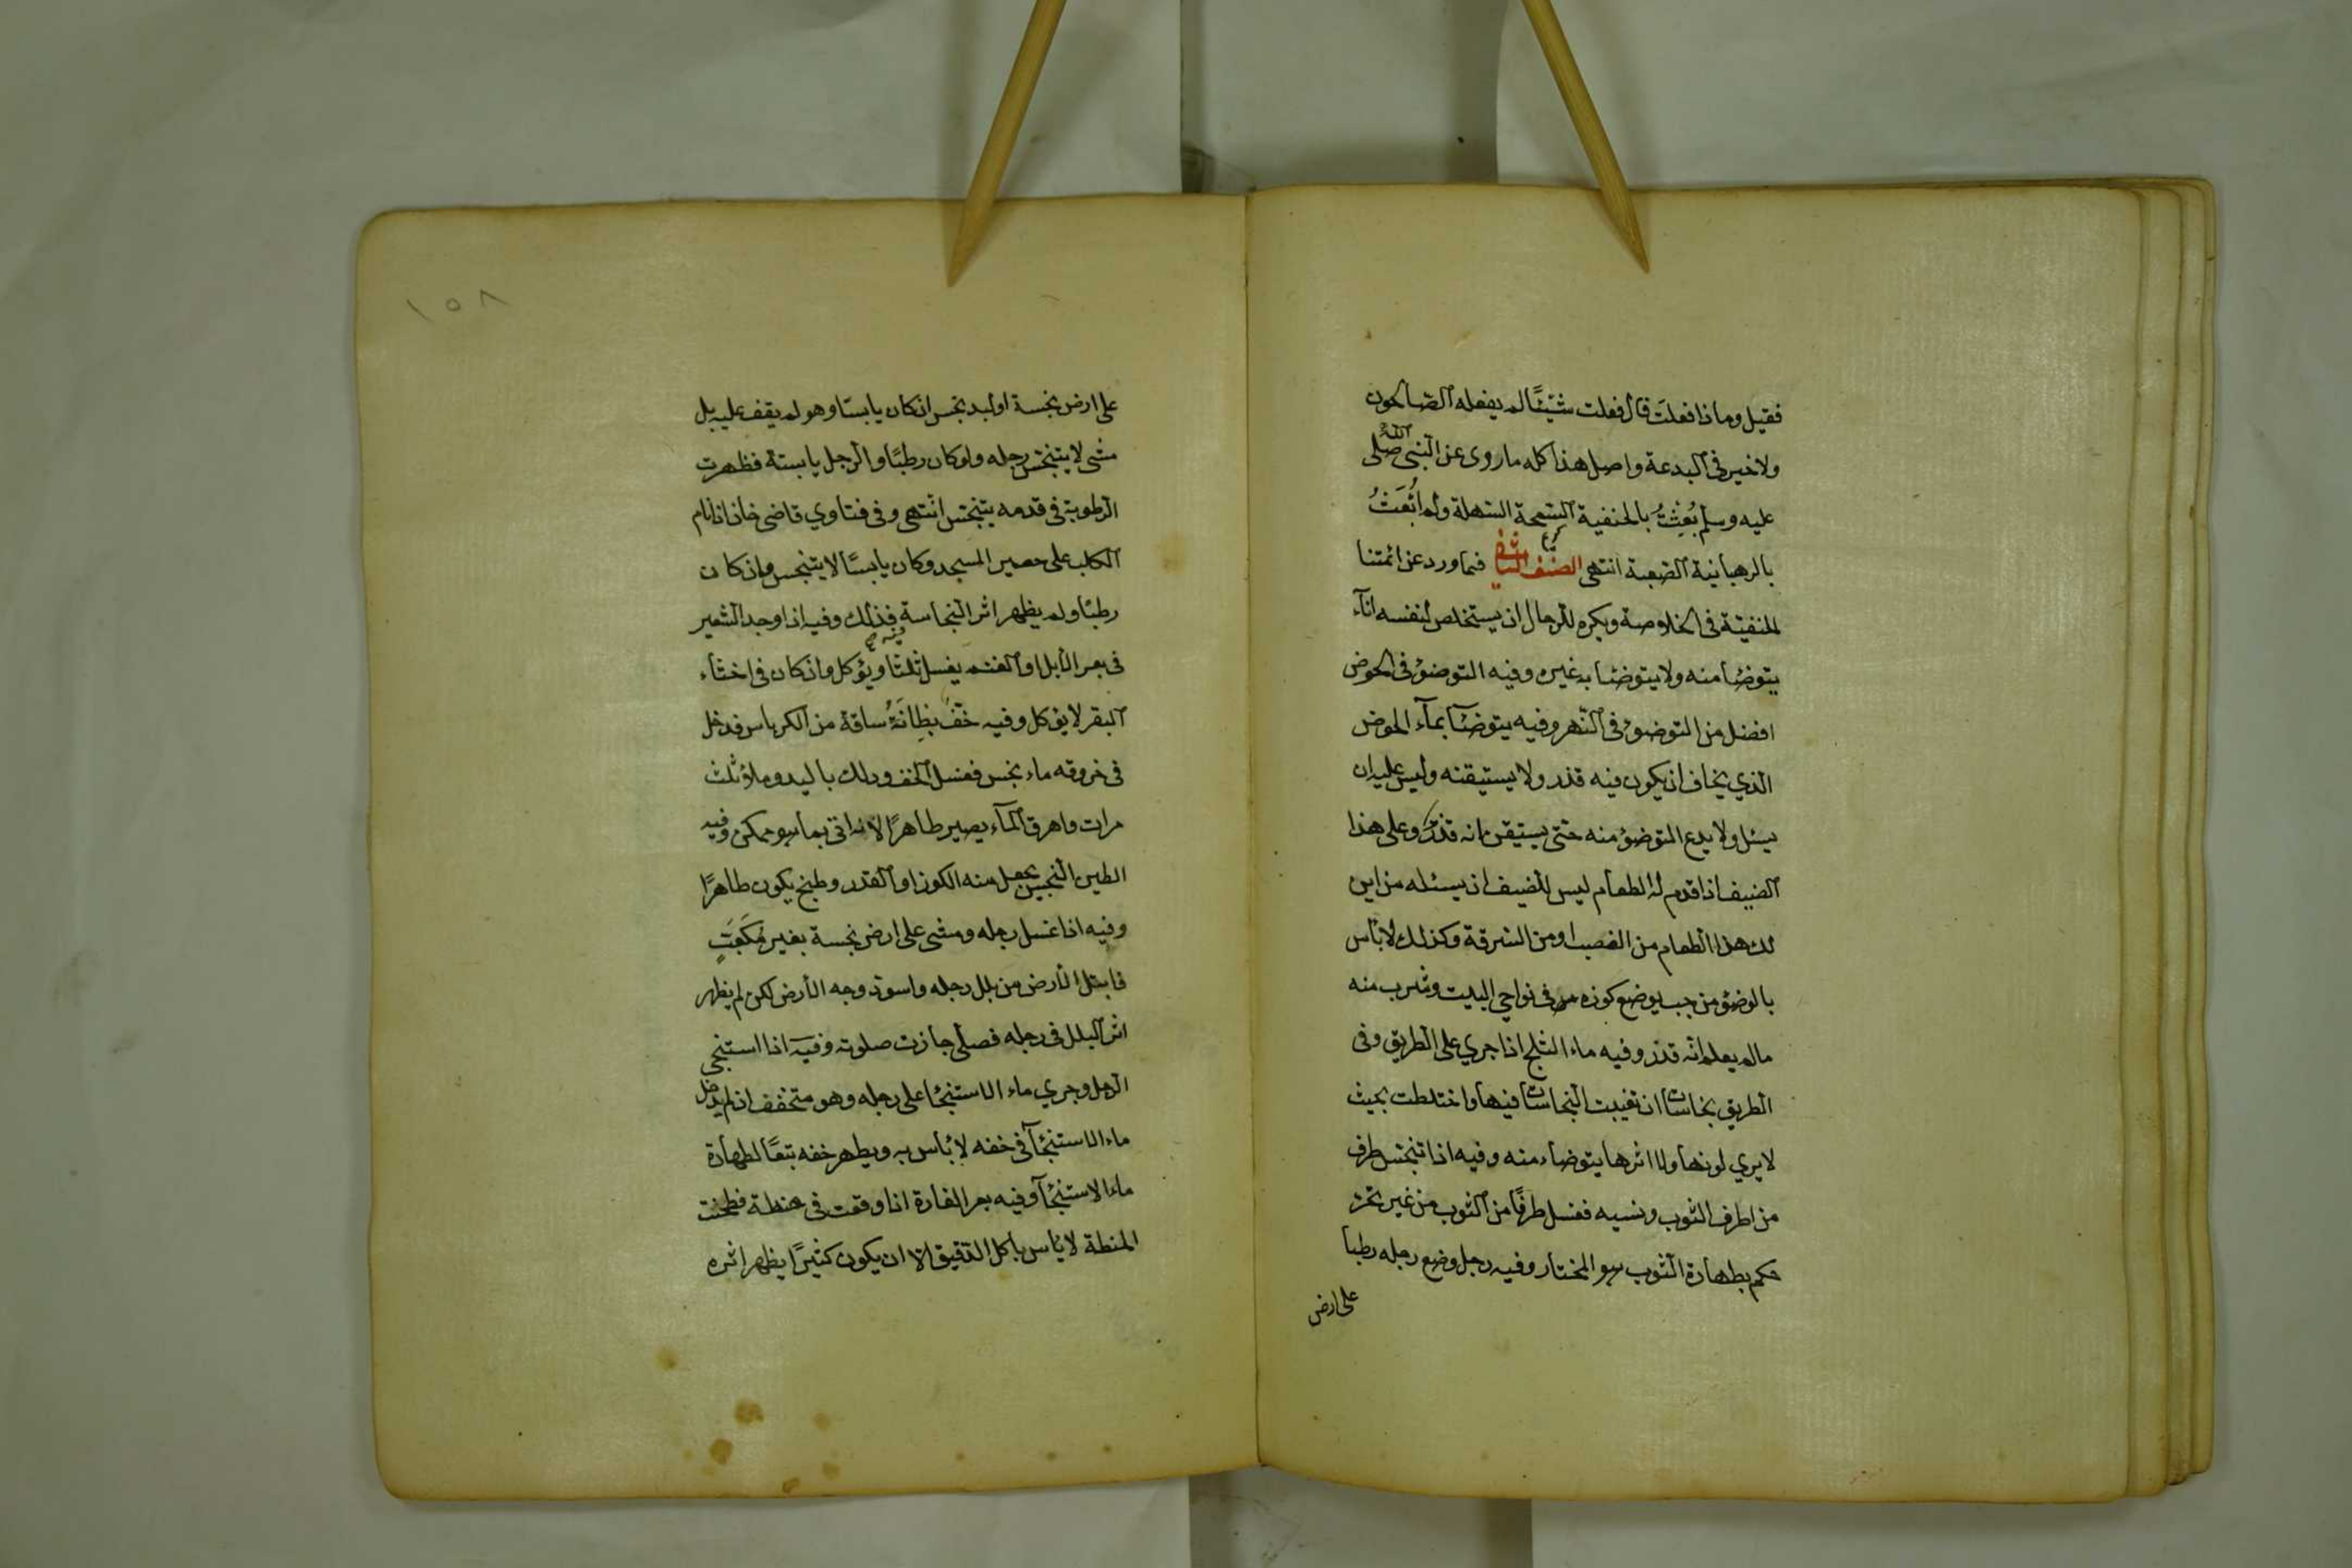 فقيل وماذا فعلتَ قال فعلت شيئًا لم يفعله الصّالحون
ولا خير في البدعة واصل هذا كله ما روى عن النبي صلى الله
عليه وسلم بُعِثْتُ بالحنفية السّمحة السّهلة ولم اُبْعَثْ
بالرهبانية الصّعبة انتهى الصّنف الثاني فيما ورد عن ائمتنا
الحنفيّة في الخلاصة ويكره للرجال ان يستخلص لنفسه انآء
يتوضّأ منه ولا يتوضّأ به غيره وفيه التوضؤ في الحوض
افضل من التوضؤ في النّهر وفيه يتوضّأ بمآء الحوض
الذي يخاف ان يكون فيه قذر ولا يستيقنه وليس عليه ان
يسئل ولا يدع التوضؤ منه حتّى يستيقن انه قذر وعلى هذا
الضيف اذا قدم له الطعام ليس للضيف ان يسئله من اين
لك هذا الطعام من الغصب او من السّرقة وكذلك لا بأس
بالوضؤ من جب يوضع كوزه في نواحي البيت وشرب منه
ما لم يعلم انّه قذر وفيه ماء الثلج اذا جري على الطّريق وفى
الطّريق نجاسات ان تغيبت النّجاسات فيها واختلطت بحيث
لا يري لونها ولا اثرها يتوضاء منه وفيه اذا تنجّس طرف
من اطرف الثوب ونسيه فغسل طرفًا من الثوب من غير تحرّ
حكم بطهارة الثوب هو المختار وفيه رجل وضع رجله رطبا
على ارض
١٥٨
على ارض نجسة او لبد نجس ان كان يابسًا وهو لم يقف عليه بل
مشى لا يتنجّس رجله ولو كان رطبًا والرّجل يابسة فظهرت
الرّطوبة في قدمه يتنجّس انتهى وفى فتاوي قاضى خان اذا نام
الكلب على حصير المسجد وكان يابسًا لا يتنجس وان كان
رطبًا ولم يظهر اثر النّجاسة فكذلك وفيه اذا وجد الشّعير
في بعر الابل او الغنم يغسل ثلثًا ويؤكل وان كان في اخثاء
البقر لا يؤكل وفيه خفّ بِطانَةُ ساقه من الكرباس فدخل
في خروقه ماء نجس فغسل الخف ودلك باليد وملاؤ ثلث
مرات واهرق المآء يصير طاهرًا لانه اتى بما هو ممكن وفيه
الطين النّجس يجعل منه الكوز او القدر وطبخ يكون طاهرًا
وفيه اذا غسل رجله ومشى على ارض نجسة بغير مُكَعَّبٍ
فابتل الارض من بلل رجله واسودّ وجه الارض لكن لم يظهر
اثر البلل في رجله فصلّى جازت صلوته وفيه اذا استنجى
الرجل وجري ماء الاستنجأ على رجله وهو متخفف ان لم يدخل
ماء الاستنجأ في خفه لا بأس به ويطهر خفه تبعًا لطهارة
ماء الاستنجأ وفيه بعر الفارة اذا وقعت في حنطة فطحنت
الحنطة لا بأس باكل الدّقيق الّا ان يكون كثيرًا يظهر اثره